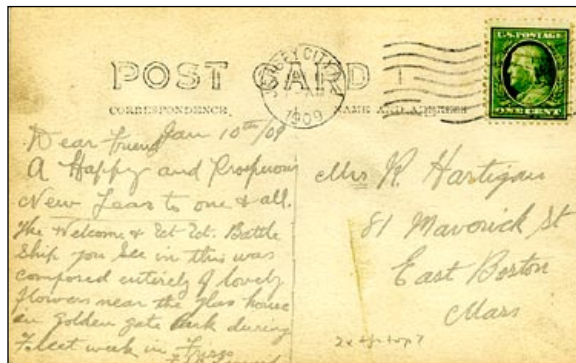 POST CARD
CORRESPONDENCE
NAME AND ADDRESS
JERSEY CITY
1909
U.S. POSTAGE
ONE CENT
Jan 10th/09
Dear friend
A Happy and Prosperous
New Year to one & all.
The Welcome & Battle
Ship you see in this was
composed entirely of lovely
flowers near the glass house
in golden gate Park during
Fleet week in
Mrs R. Hartigan
81 Maverick St
East Boston
Mass